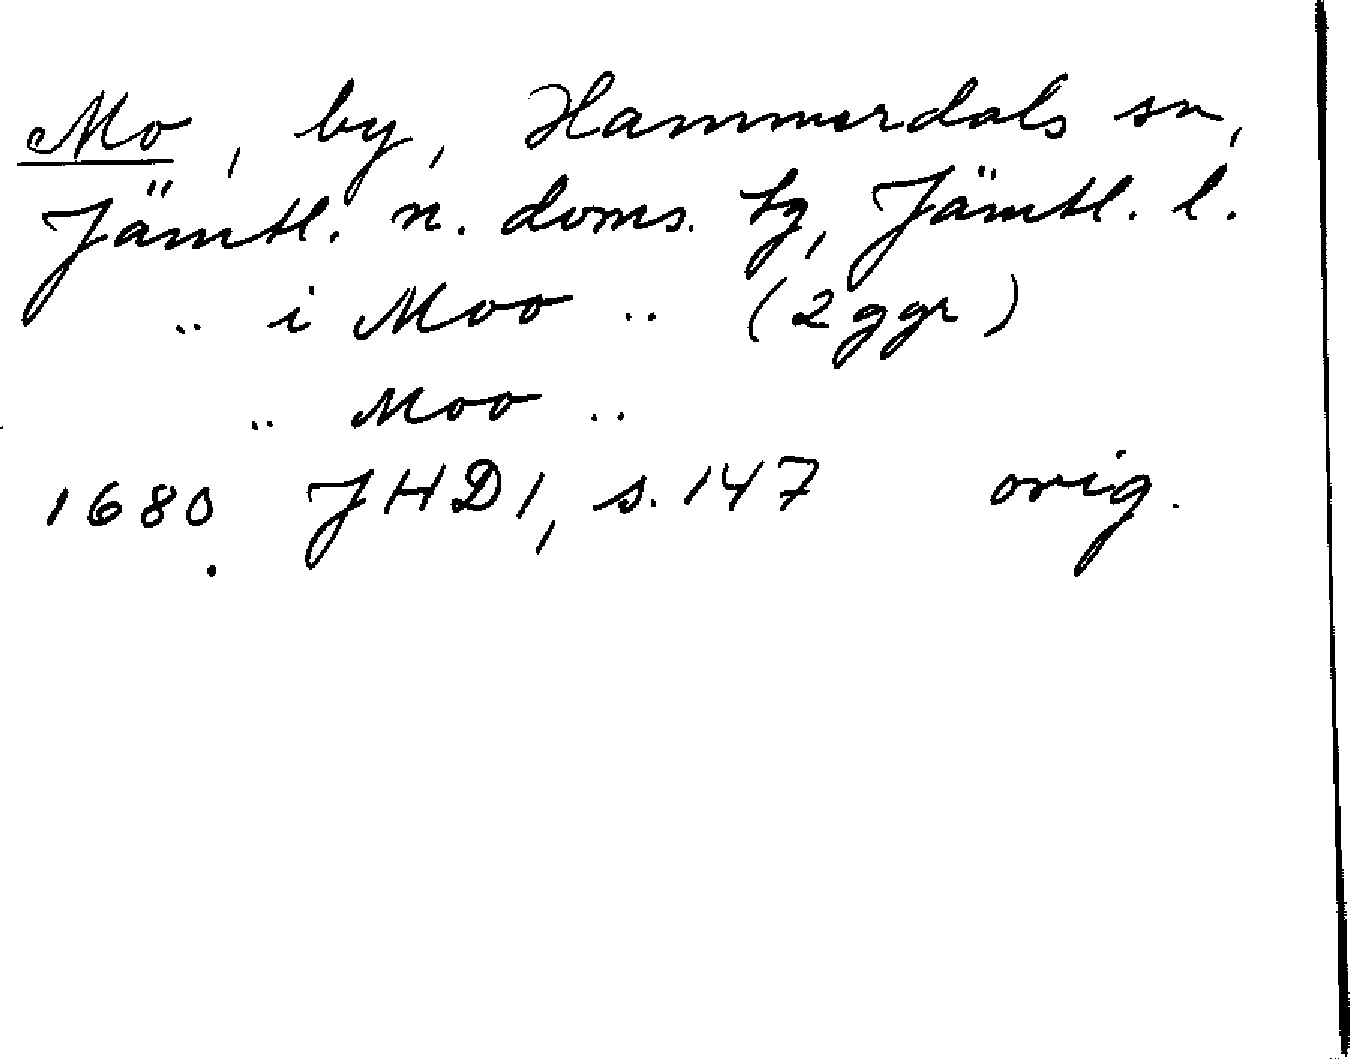 Mo, by, Hammerdals sn,
Jämtl. n. doms. tg, Jämtl. l.
.. i Moo .. (2 ggr)
.. Moo ..
1680. JHD 1, s. 147 orig.